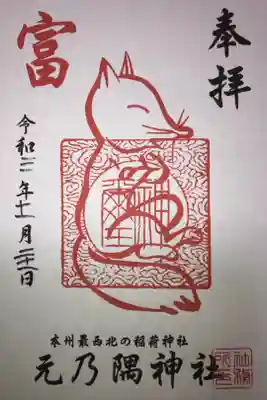 奉拝
富
令和三年十一月二十一日
本州最西北の稲荷神社
元乃隅神社